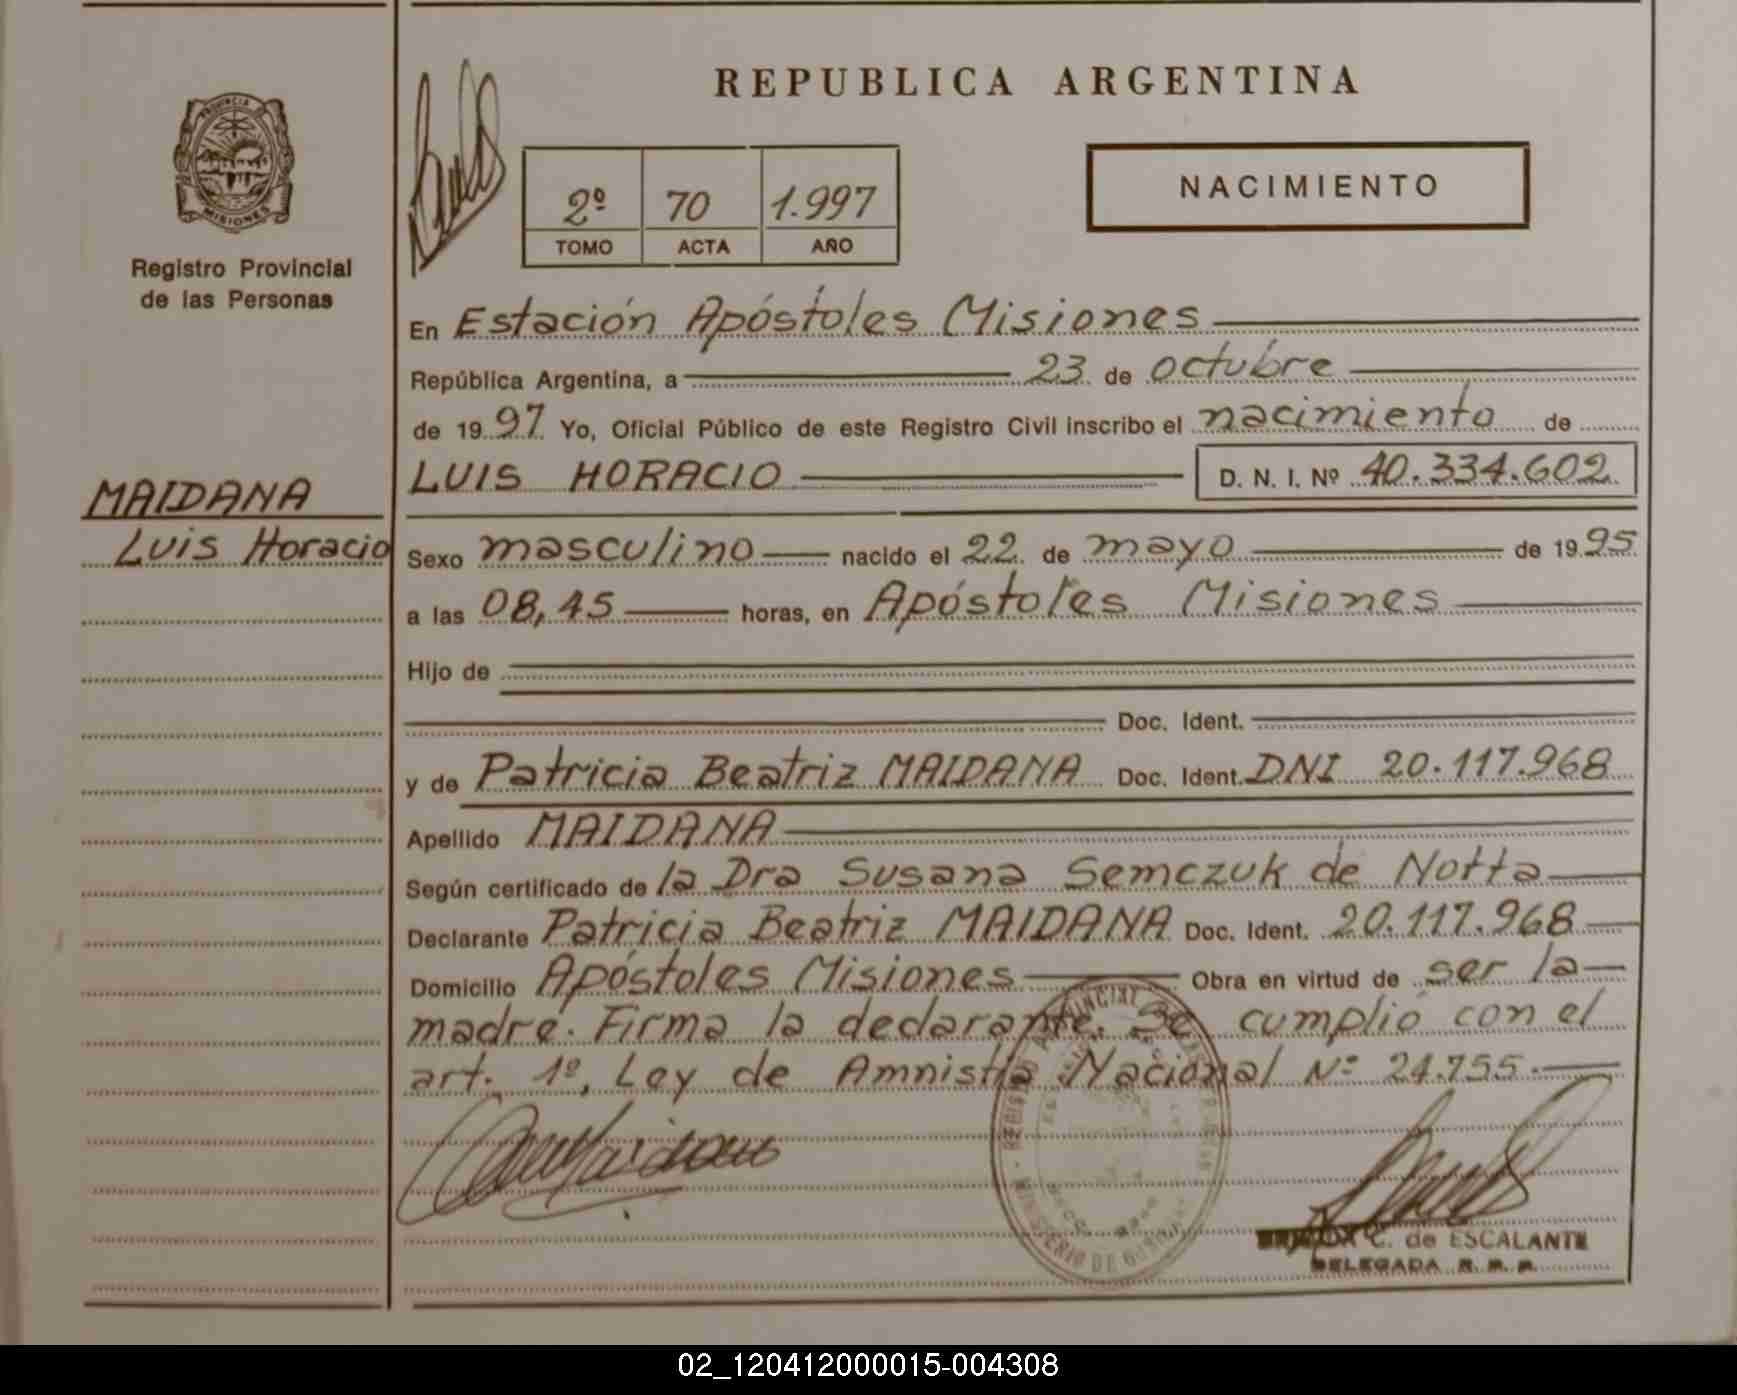 REPUBLICA ARGENTINA
PROVINCIA DE
MISIONES
Registro Provincial
de las Personas
2º 70 1.997
TOMO ACTA AÑO
NACIMIENTO
En Estación Apóstoles Misiones
República Argentina, a 23 de octubre
de 1997 Yo, Oficial Público de este Registro Civil inscribo el nacimiento de
LUIS HORACIO D. N. I. Nº 40.334.602
MAIDANA
Luis Horacio
Sexo masculino nacido el 22 de mayo de 1995
a las 08,45 horas, en Apóstoles Misiones
Hijo de
Doc. Ident.
y de Patricia Beatriz MAIDANA Doc. Ident. DNI 20.117.968
Apellido MAIDANA
Según certificado de la Dra Susana Semczuk de Notta
Declarante Patricia Beatriz MAIDANA Doc. Ident. 20.117.968
Domicilio Apóstoles Misiones Obra en virtud de ser la
madre. Firma la declarante. Se cumplió con el
art. 1º, Ley de Amnistía Nacional Nº 24.755.
REGISTRO PROVINCIAL DE LAS PERSONAS
MINISTERIO DE GOBIERNO
C. de ESCALANTE
DELEGADA R. P. P.
02_120412000015-004308